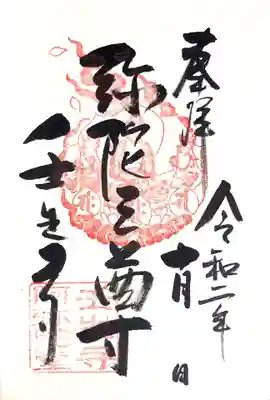 奉拝
令和二年
月 日
弥陀三尊
壬生寺